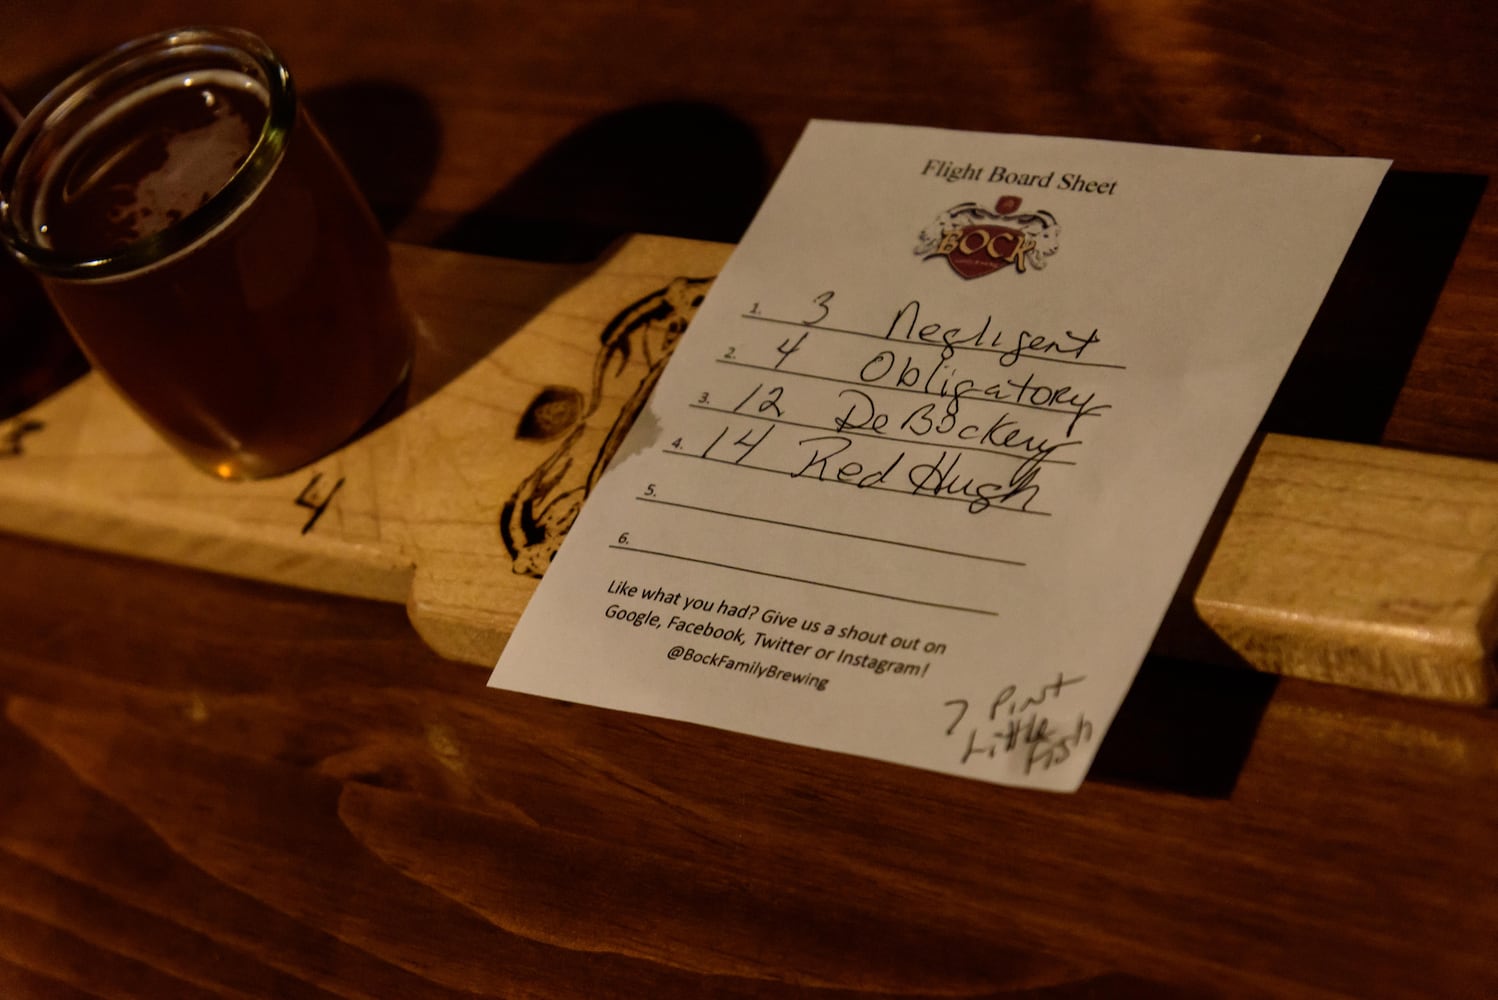 Flight Board Sheet
BOCK
1. 3 Negligent
2. 4 Obligatory
3. 12 De Bockery
4. 14 Red Hugh
5.
6.
Like what you had? Give us a shout out on
Google, Facebook, Twitter or Instagram!
@BockFamilyBrewing
7 Pint
Little
Fish
4